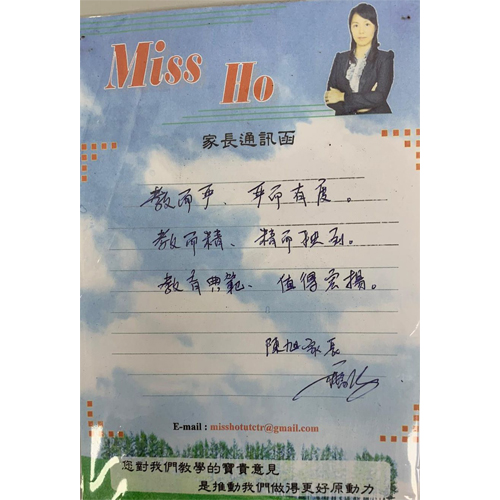 Miss Ho
家長通訊函
教而严、严而有度。
教而精、精而独到。
教育典範、值得宏揚。
陳旭家長
E-mail : misshotutctr@gmail.com
您對我們教學的寶貴意見
是推動我們做得更好原動力